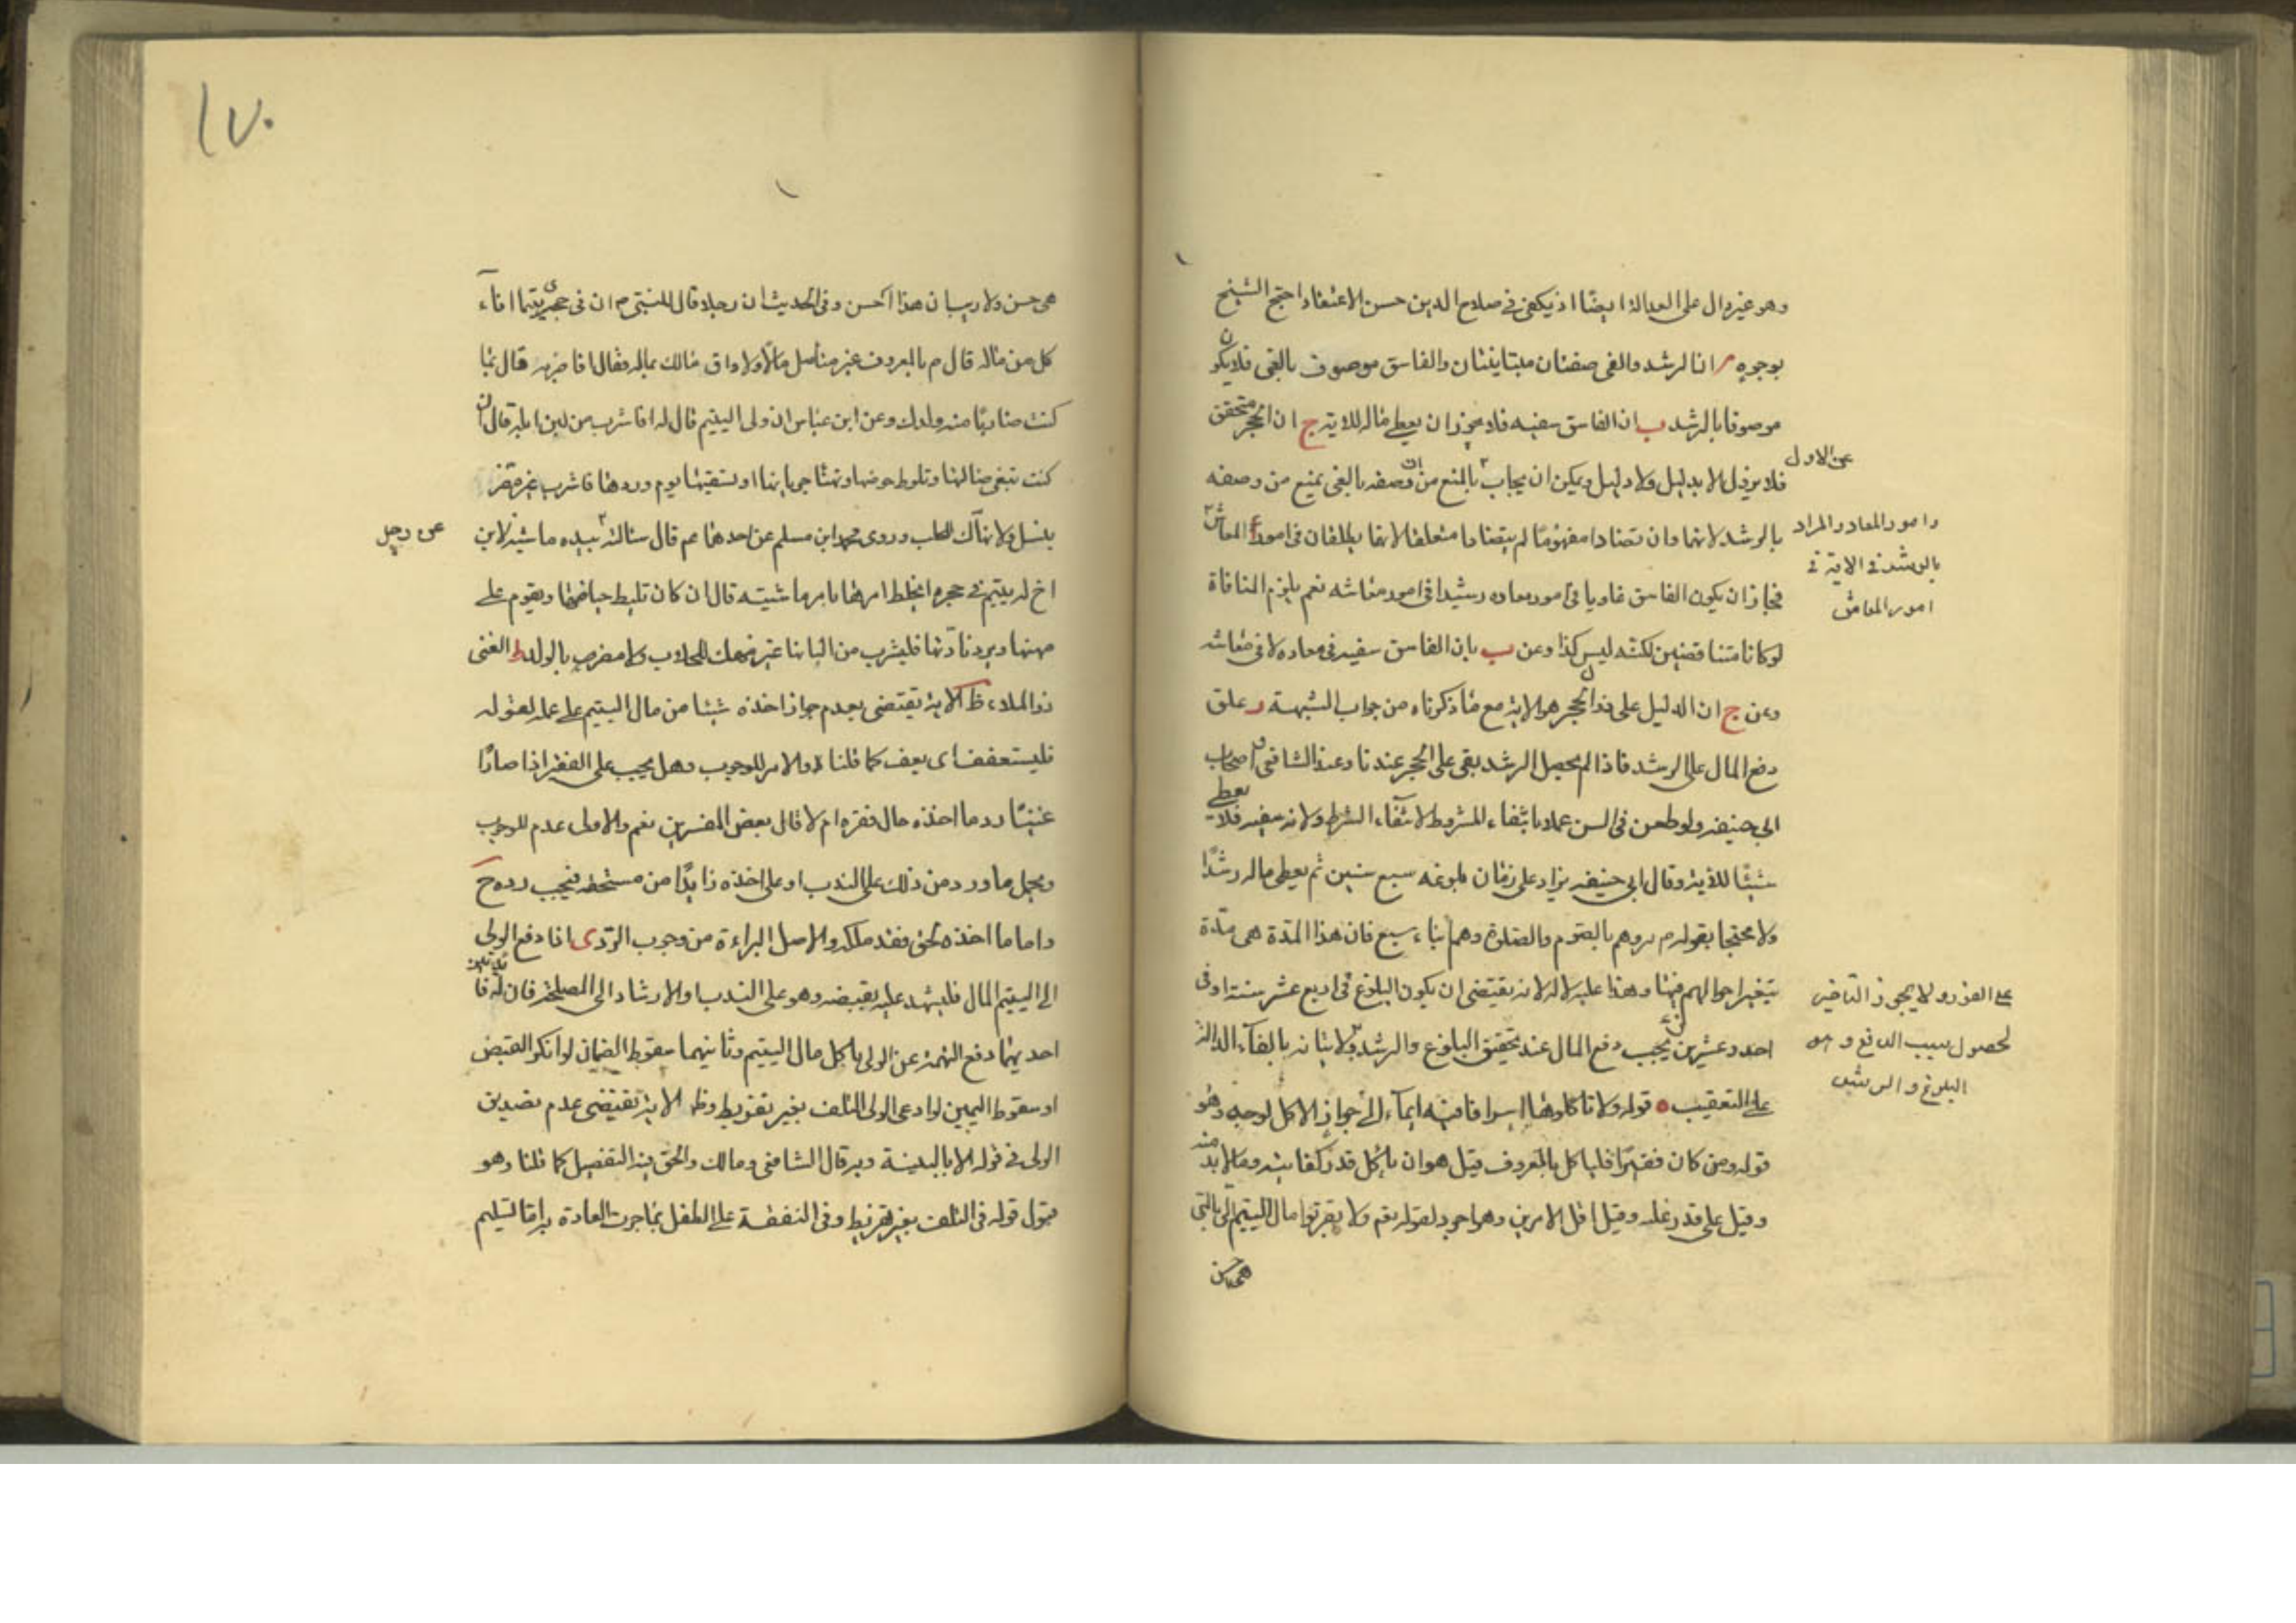 وهو غير دال على العدالة ايضا اذ يكفى فى صلاح الدين حسن الاعتقاد احتج الشيخ
بوجوه ان الرشد والغى صفتان متباينتان والفاسق موصوف بالغى فلا يكون
موصوفا بالرشد ب ان الفاسق سفيه فلا يجوز ان يعطى ماله للاية ج ان الحجر متحقق
فلا يزول الا بدليل ولا دليل ويمكن ان يجاب بالمنع من ان وصفه بالغى يمنع من وصفه
عن الاول
بالرشد لانهما وان تضادا مفهوما لم يتضادا متعلقا لانهما يطلقان فى امور المعاش
وامور المعاد والمراد
بالرشد فى الاية فى
امور المعاش
فجاز ان يكون الفاسق غاويا فى امور معاده رشيدا فى امور معاشه نعم يلزم المنافاة
لو كانا متناقضين لكنه ليس كذا وعن ب بان الفاسق سفيه فى معاده لا فى معاشه
وعن ج ان الدليل على فك الحجر هو الاية مع ما ذكرناه من جواب الشبهة د علق
دفع المال على الرشد فاذا لم يحصل الرشد بقى على الحجر عندنا وعند الشافعى واصحاب
ابى حنيفه ولو طعن فى السن عملا بانتفاء المشروط لانتفاء الشرط ولانه سفيه فلا يعطى
شيئا للاية وقال ابى حنيفه يزاد على زمان بلوغه سبع سنين ثم يعطى ماله رشدا
ولا محتجا بقوله م مروهم بالصوم والصلوة وهم ابناء سبع فان هذا المدة هى مدة
يتغير احوالهم فيها وهذا عليه لا له لانه يقتضى ان يكون البلوغ فى اربع عشر سنة او فى
احد وعشرين يجب دفع المال عند تحقيق البلوغ والرشد لاتيانه بالفاء الدالة
على الفور ولا يجوز التاخير
لحصول سبب الدفع وهو
البلوغ والرشد
على التعقيب قوله ولا تاكلوها اسرافا فيه ايماء الى جواز الاكل لوجه وهو
قوله ومن كان فقيرا فلياكل بالمعروف قيل هو ان ياكل قدر كفايته وما لا بد منه
وقيل على قدر عمله وقيل اقل الامرين وهو اجود لقوله تعم ولا تقربوا مال اليتيم الا بالتى
هى احسن
١٧٠
هى احسن ولا ريب ان هذا احسن وفى الحديث ان رجلا قال للنبى م ان فى حجرى يتيما افا
كل من ماله قال م بالمعروف غير متأصل مالا ولا واق مالك بماله فقال افاضربه قال مما
كنت ضاربا منه ولدك وعن ابن عباس ان ولى اليتيم قال له افاشرب من لبن ابله قال ان
كنت تبغى ضالتها وتلوط حوضها وتهنا جرباءها وتسقيها يوم وردها فاشرب غير مضر
بنسل ولا ناهك للحلب وروى محمد ابن مسلم عن احدهما عم قال سئالته بيده ماشية لابن
عن رجل
اخ له يتيم فى حجره ايخلط امرها بامر ماشيته قال ان كان تليط حياضها ويقوم على
مهنتها ويرد نادتها فليشرب من البانها غير منهك للحلاب ولا مضر بالولد ط الغنى
ذو الملاء ظ الاية يقتضى بعدم جواز اخذه شيئا من مال اليتيم على عمله لقوله
فليستعفف اى يعف كما قلناه والامر للوجوب وهل يجب على الفقير اذا صار
غنيا رد ما اخذه حال فقره ام لا قال بعض المفسرين نعم والاولى عدم الوجوب
ويحمل ما ورد من ذلك على الندب او على اخذه زايدا من مستحقه فيجب رده ح
واما ما اخذه بحق فقد ملكه والاصل البراءة من وجوب الرد ى اذا دفع الولى
الى اليتيم المال فليشهد عليه بقبضه وهو على الندب والارشاد الى المصلحة فان له فايدتين
احديهما دفع التهمة عن الولى باكل مال اليتيم وثانيهما سقوط الضمان لو انكر القبض
او سقوط اليمين لو ادعى الولى التلف بغير تفريط وظ الاية تقتضى عدم تصديق
الولى فى قوله الا بالبينة وبه قال الشافعى ومالك والحق فيه التفصيل كما قلنا وهو
قبول قوله فى التلف بغير تفريط وفى النفقة على الطفل بما جرت العادة به اما التسليم